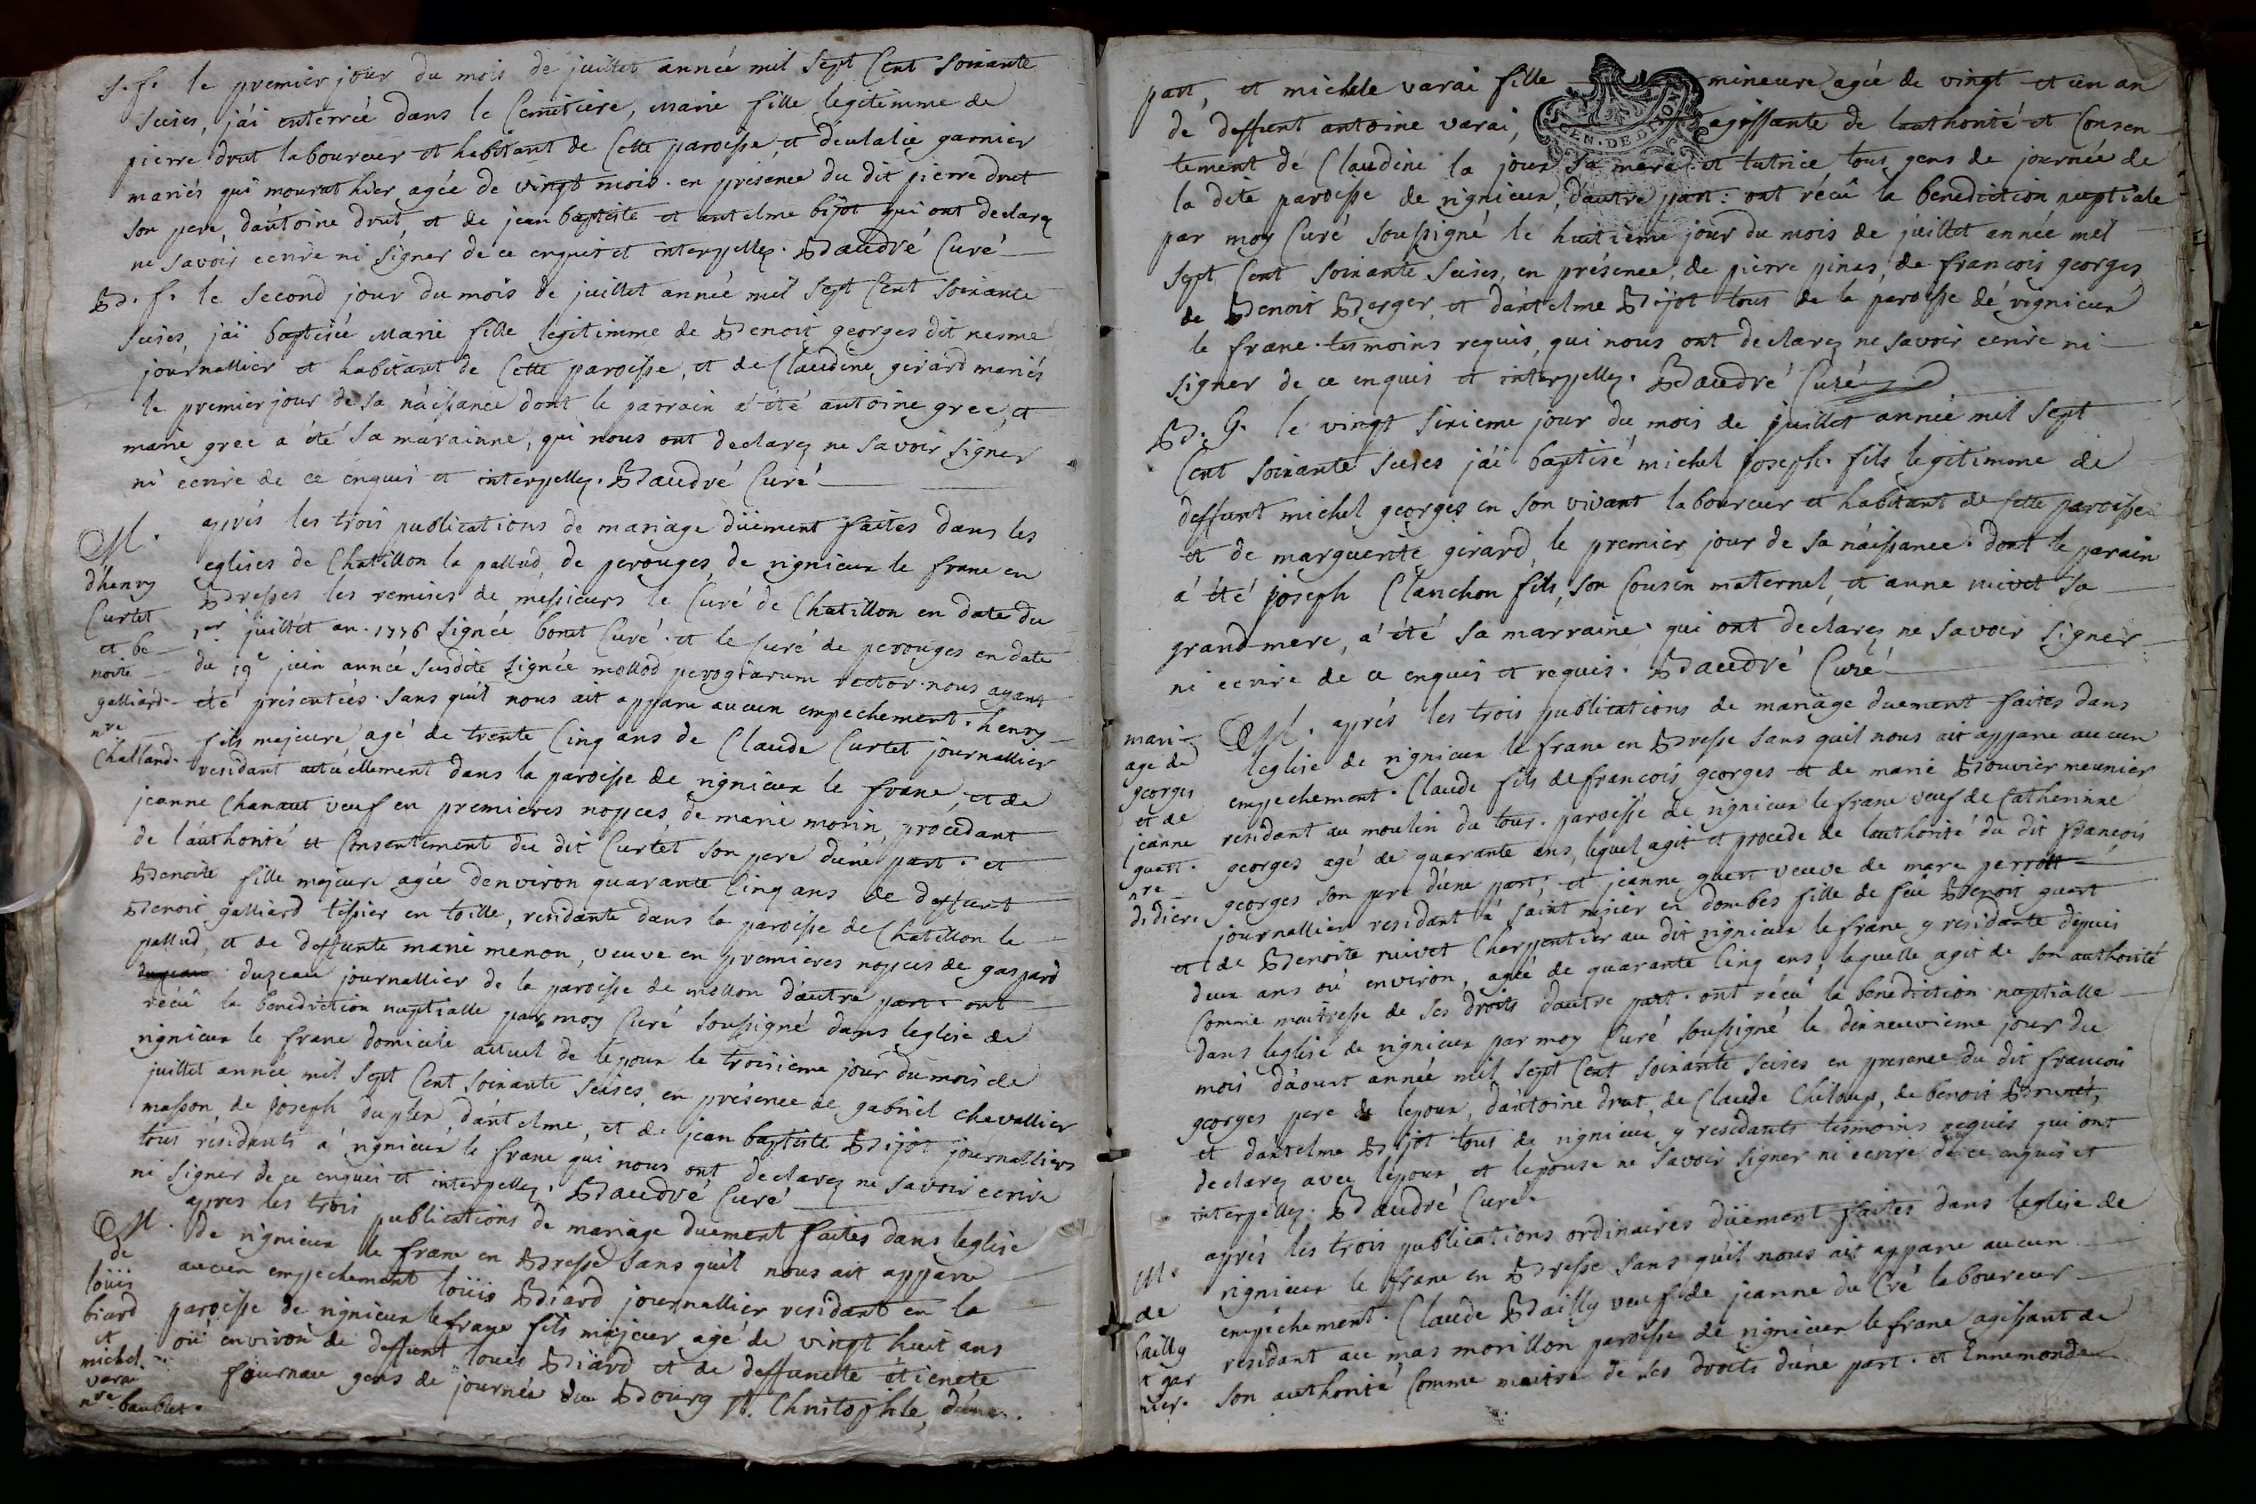 S. f. le premier jour du mois de juillet année mil sept Cent soixante
seises, j'ai enterrée dans le Cemitiere, Marie fille legitimme de
pierre drut laboureur et habitant de Cette paroisse, et d'eulalie garnier
mariés qui mourut hier agée de vingt mois. en présence du dit pierre drut
son pere, d'antoine drut, et de jean baptiste et antelme bijot qui ont declaré
ne savoir ecrire ni signer de ce enquis et interpellez. Baudré Curé
B. f. le second jour du mois de juillet année mil sept Cent soixante
seises, j'ai baptisée Marie fille legitimme de Benoit georges dit nesme
journallier et habitant de Cette paroisse, et de Claudine girard mariés
le premier jour de sa naissance dont le parrain a été antoine gree, et
marie gree a été sa marainne, qui nous ont declarez ne savoir signer
ni ecrire de ce enquis et interpellez. Baudré Curé
M. aprés les trois publications de mariage düement faites dans les
d'henry eglises de Chatillon la pallud, de perouges, de rignieux le franc en
Curtet Bresses les remises de messieurs le Curé de Chatillon en date du
et be- 1er juillet an. 1776 signée bonet Curé. et le Curé de perouges en date
noite du 19e juin année susdite signée mollod perogiarum rector. nous ayant
galliard. été présentées. sans qu'il nous ait apparu aucun empechement. henry
nre fils majeure agé de trente Cinq ans de Claude Curtet journallier
Challand. residant actuellement dans la paroisse de rignieux le franc, et de
jeanne Chanaut veuf en premieres nopces de marie morin, procedant
de l'authorité et Consentement du dit Curtet son pere d'une part. et
Benoite fille majeure agée denviron quarante Cinq ans de deffunt
Benoit galliard tissier en toille, residante dans la paroisse de Chatillon la
pallud, et de deffunte marie menon, veuve en premieres nopces de gaspard
duzeau journallier de la paroisse de mollon d'autre part. ont
récû la benediction nuptialle par moy Curé soussigné dans leglise de
rignieux le franc domicile actuel de lepoux le troisieme jour du mois de
juillet année mil sept Cent soixante seises, en présence de gabriel chevallier
masson, de joseph duplex, d'antelme, et de jean baptiste Bijot journalliers
tous résidants a rignieux le franc qui nous ont declarez ne savoir ecrire
ni signer de ce enquis et interpellez. Baudré Curé
M. apres les trois publications de mariage duement faites dans leglise
de de rignieux le franc en Bresse sans qu'il nous ait apparu
löuis aucun empechement löuis Biard journallier residant en la
biard paroisse de rignieux le franc fils majeur agé de vingt huit ans
et où environ de deffunt louis Biard et de deffuncte étienete
michel. varai fournau gens de journée du Bourg St. Christophle, d'une
nre baublet.
part, et michele varai fille mineure agée de vingt et un an
de deffunt antoine varai, agissante de lauthorité et Consen
GEN. DE DIJON
tement de Claudine la joux sa mere et tutrice tous gens de journée de
la dite paroisse de rignieux, d'autre part: ont récû la benediction nuptiale
par moy Curé soussigné le huitieme jour du mois de juillet année mil
sept Cent soixante seises, en présence, de pierre pinas, de francois georges
de Benoit Berger, et d'antelme Bijot tous de la paroisse de rignieux
le franc. tesmoins requis, qui nous ont declarez ne savoir ecrire ni
signer de ce enquis et interpellez. Baudré Curé
B. G. le vingt sixieme jour du mois de juillet année mil sept
Cent soixante seises j'ai baptisé michel joseph. fils legitimme de
deffunt michel georges en son vivant laboureur et habitant de Cette paroisse
et de marguerite girard, le premier jour de sa naissance. dont le parain
a été joseph Clanchon fils, son Cousin maternel, et anne nivet sa
grand mere, a été sa marraine. qui ont declarez ne savoir signer
ni ecrire de ce enquis et requis. Baudré Curé
mari- M. aprés les trois publications de mariage duement faites dans
age de leglise de rignieux le franc en Bresse sans quil nous ait apparu aucun
georges empechement. Claude fils de francois georges et de marie Bouvier meunier
et de residant au moulin du tour. paroisse de rignieux le franc veuf de Catherinne
jeanne georges agé de quarante ans, lequel agit et procede de lauthorité du dit francois
guest. georges son pere d'une part; et jeanne guest veuve de marc perrot
nre didier. journallier residant à saint nisier en dombes fille de feu Benoit guest
et de Benoite nuivet Charpentier au dit rignieux le franc y residante depuis
deux ans où environ, agée de quarante Cinq ans, lequelle agit de son authorité
Comme maitresse de ses droits d'autre part. ont récû la benediction nuptialle
dans leglise de rignieux par moy Curé soussigné le dixneuvieme jour du
mois d'aoust année mil sept Cent soixante seises en presence du dit francois
georges pere de lepoux, d'antoine drut, de Claude Chiloup, de benoit Brunet,
et d'antelme Bijot tous de rignieux y residants tesmoins requis qui ont
declarez avec lepoux, et lepouse ne savoir signer ni ecrire de ce enquis et
interpellez. Baudré Curé.
M. aprés les trois publications ordinaires düement faites dans leglise de
de rignieux le franc en Bresse sans qu'il nous ait apparu aucun
bailly empechement. Claude Bailly veuf de jeanne du Cré laboureur
et gar residant au mas morillon paroisse de rignieux le franc agissant de
nier. son authorité Comme maitre de ses droits d'une part. et Ennemonde